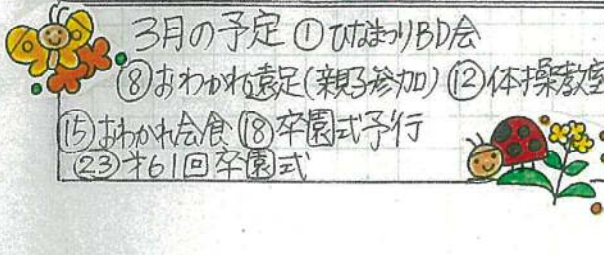 3月の予定 ① ひなまつりBD会
⑧おわかれ遠足(親子参加) ⑫体操教室
⑮おわかれ会食 ⑱卒園式予行
㉓才61回卒園式